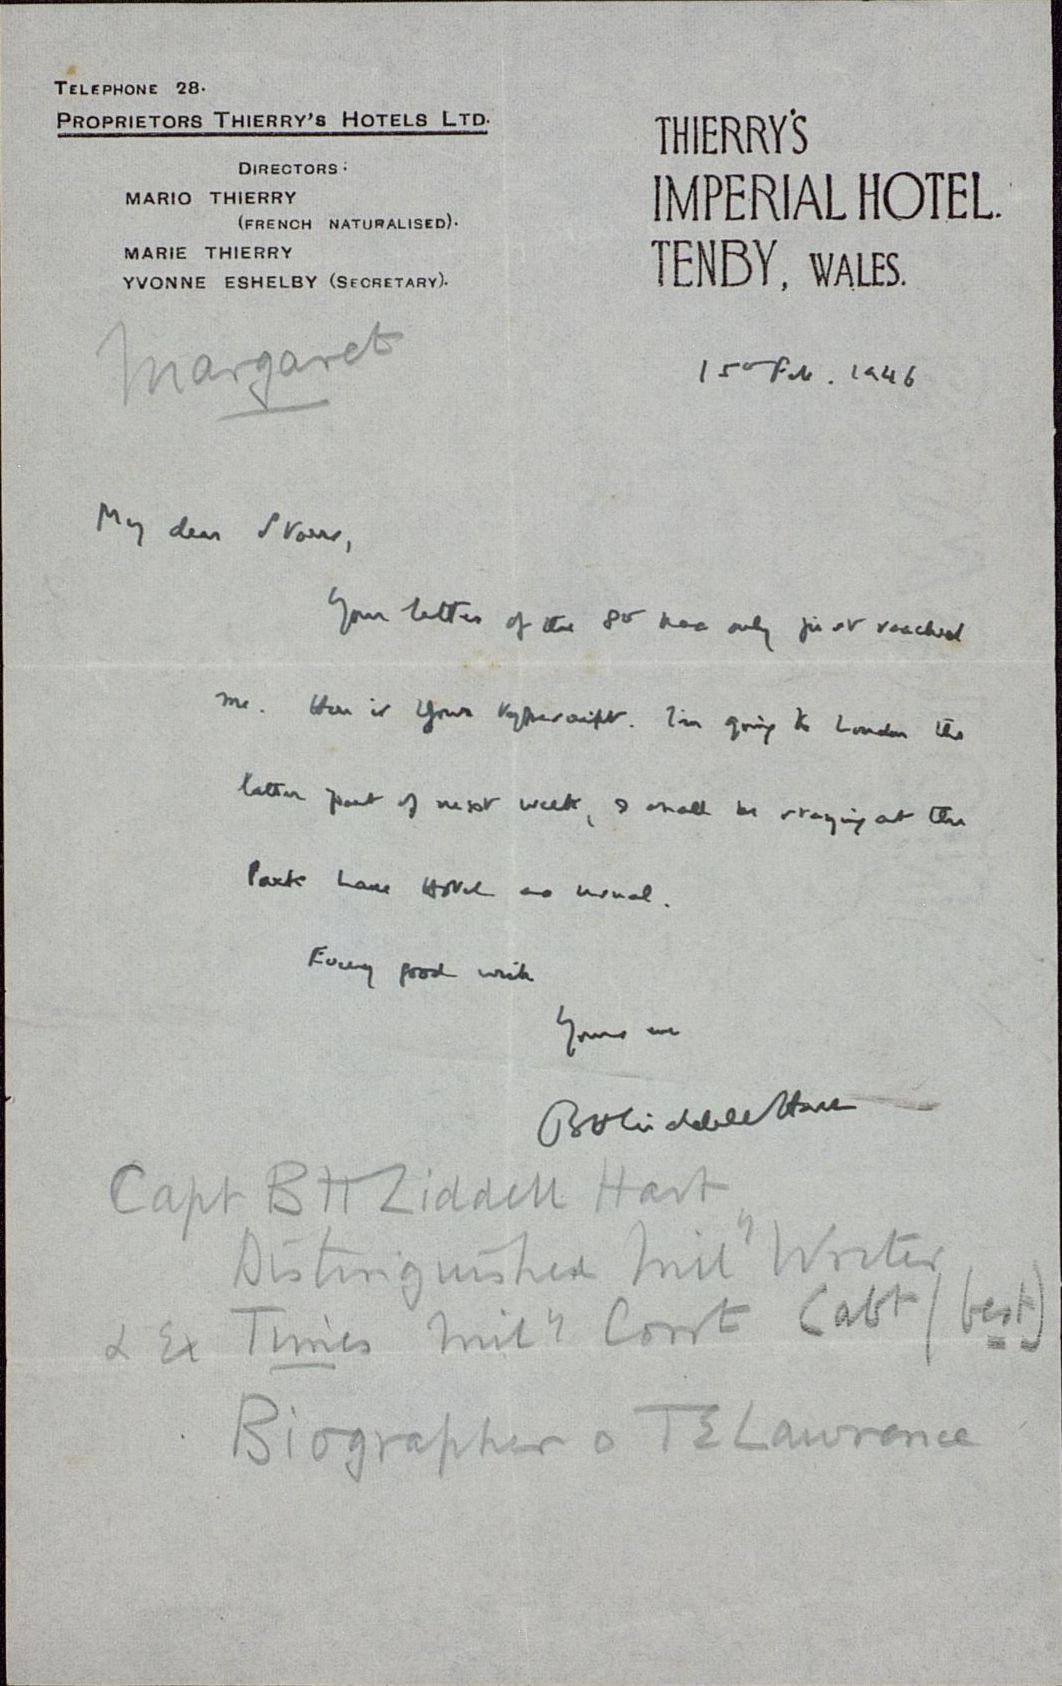 TELEPHONE 28.
PROPRIETORS THIERRY'S HOTELS LTD.
DIRECTORS:
MARIO THIERRY
(FRENCH NATURALISED).
MARIE THIERRY
YVONNE ESHELBY (SECRETARY).
THIERRY'S
IMPERIAL HOTEL.
TENBY, WALES.
Margaret
15th Feb. 1946
My dear Storrs,
Your letter of the 8th has only just reached
me. Here is your typescript. I'm going to London the
latter part of next week, & shall be staying at the
Park Lane Hotel as usual.
Every good wish
Yours ever
B H Liddell Hart
Capt B H Liddell Hart
Distinguished Mily Writer
& Ex Times Mily Corrt (abt / best)
Biographer o T E Lawrence